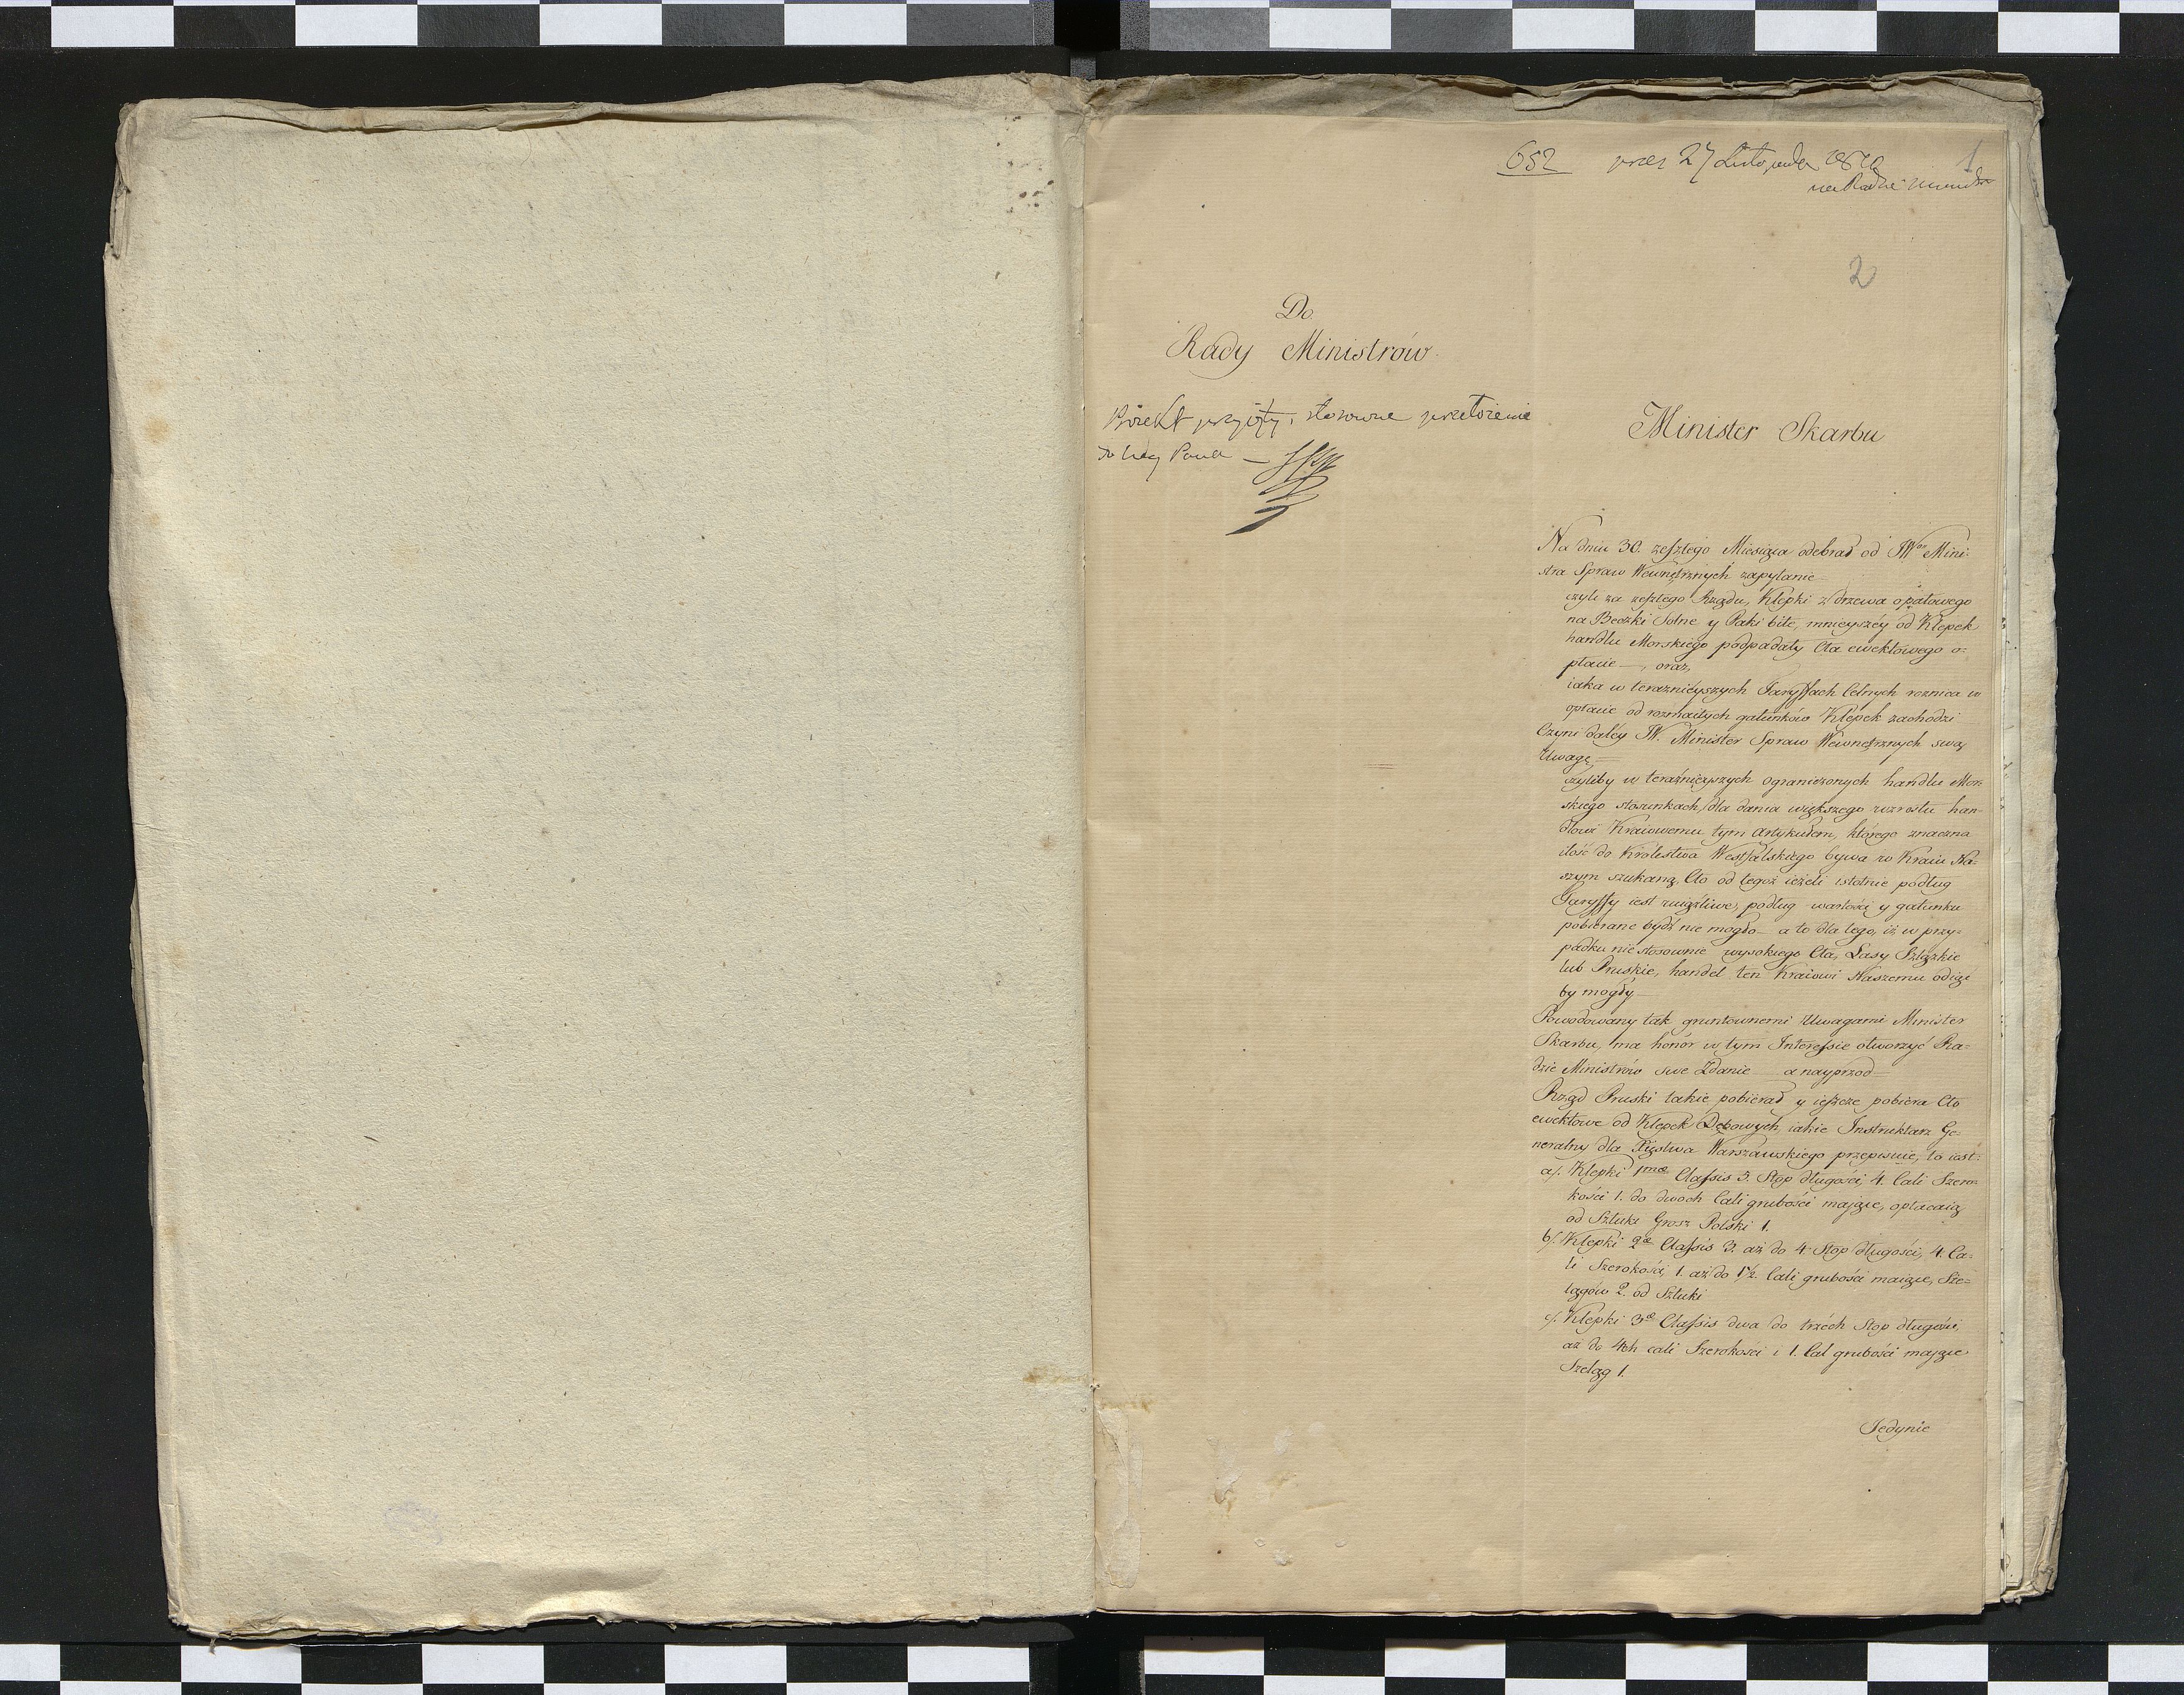 652 przez 27 Listopada 1810
na Radzie
1
2
Do
Rady Ministrów
Proiekt przyięty, stosowne przełożenie
do Pana —
Minister Skarbu
Na dniu 30. zeszłego Miesiąca odebrał od JWo Mini-
stra Spraw Wewnętrznych zapytanie —
czyli za zeszłego Rządu, Klepki z drzewa opałowego
na Beczki Solne y Paki bite, mnieyszéy od Klepek
handlu Morskiego podpadały Cła ewektowego o-
płacie —, oraz,
iaka w teraznieyszych Taryffach Celnych roznica w
opłacie od rozmaitych gatunków Klepek zachodzi
Czyni daléy JW. Minister Spraw Wewnętrznych swą
Uwagę —
czyliby w teraźnieyszych ograniczonych handlu Mor-
skiego stosunkach, dla dania większego wzrostu han-
dlowi Kraiowemu tym Artykułem, którego znaczna
ilość do Królestwa Westfalskiego bywa w Kraiu Na-
szym szukaną, Cło od tegoż ieżeli istotnie podług
Taryffy iest uciążliwe, podług wartości y gatunku
pobierane bydź nie mogło — a to dla tego, iż w przy-
padku nie stosownie wysokiego Cła, Lasy Szląskie
lub Pruskie, handel ten Kraiowi Naszemu odiąć
by mogły —
Powodowany tak gruntownemi Uwagami Minister
Skarbu, ma honor w tym Interessie otworzyć Ra-
dzie Ministrów swe Zdanie — a nayprzod —
Rząd Pruski takie pobierał y ieszcze pobiera Cło
ewektowe od Klepek Dębowych, iakie Instruktarz Ge-
neralny dla Xięstwa Warszawskiego przepisuie, to iest:
a). Klepki 1mae Classis 5. Stop długości, 4. Cali Szero-
kości 1. do dwoch Cali grubości maiące, opłacaią
od Sztuki Grosz Polski 1.
b). Klepki 2ae Classis 3. aż do 4. Stop długości, 4. Ca-
li Szerokości, 1. aż do 1½. Cali grubości maiące, Sze-
lągów 2. od Sztuki
c). Klepki 3ae Classis dwa do trzéch Stop długości,
aż do 4ch cali Szerokości i 1. Cal grubości maiące
Szeląg 1.
Jedynie